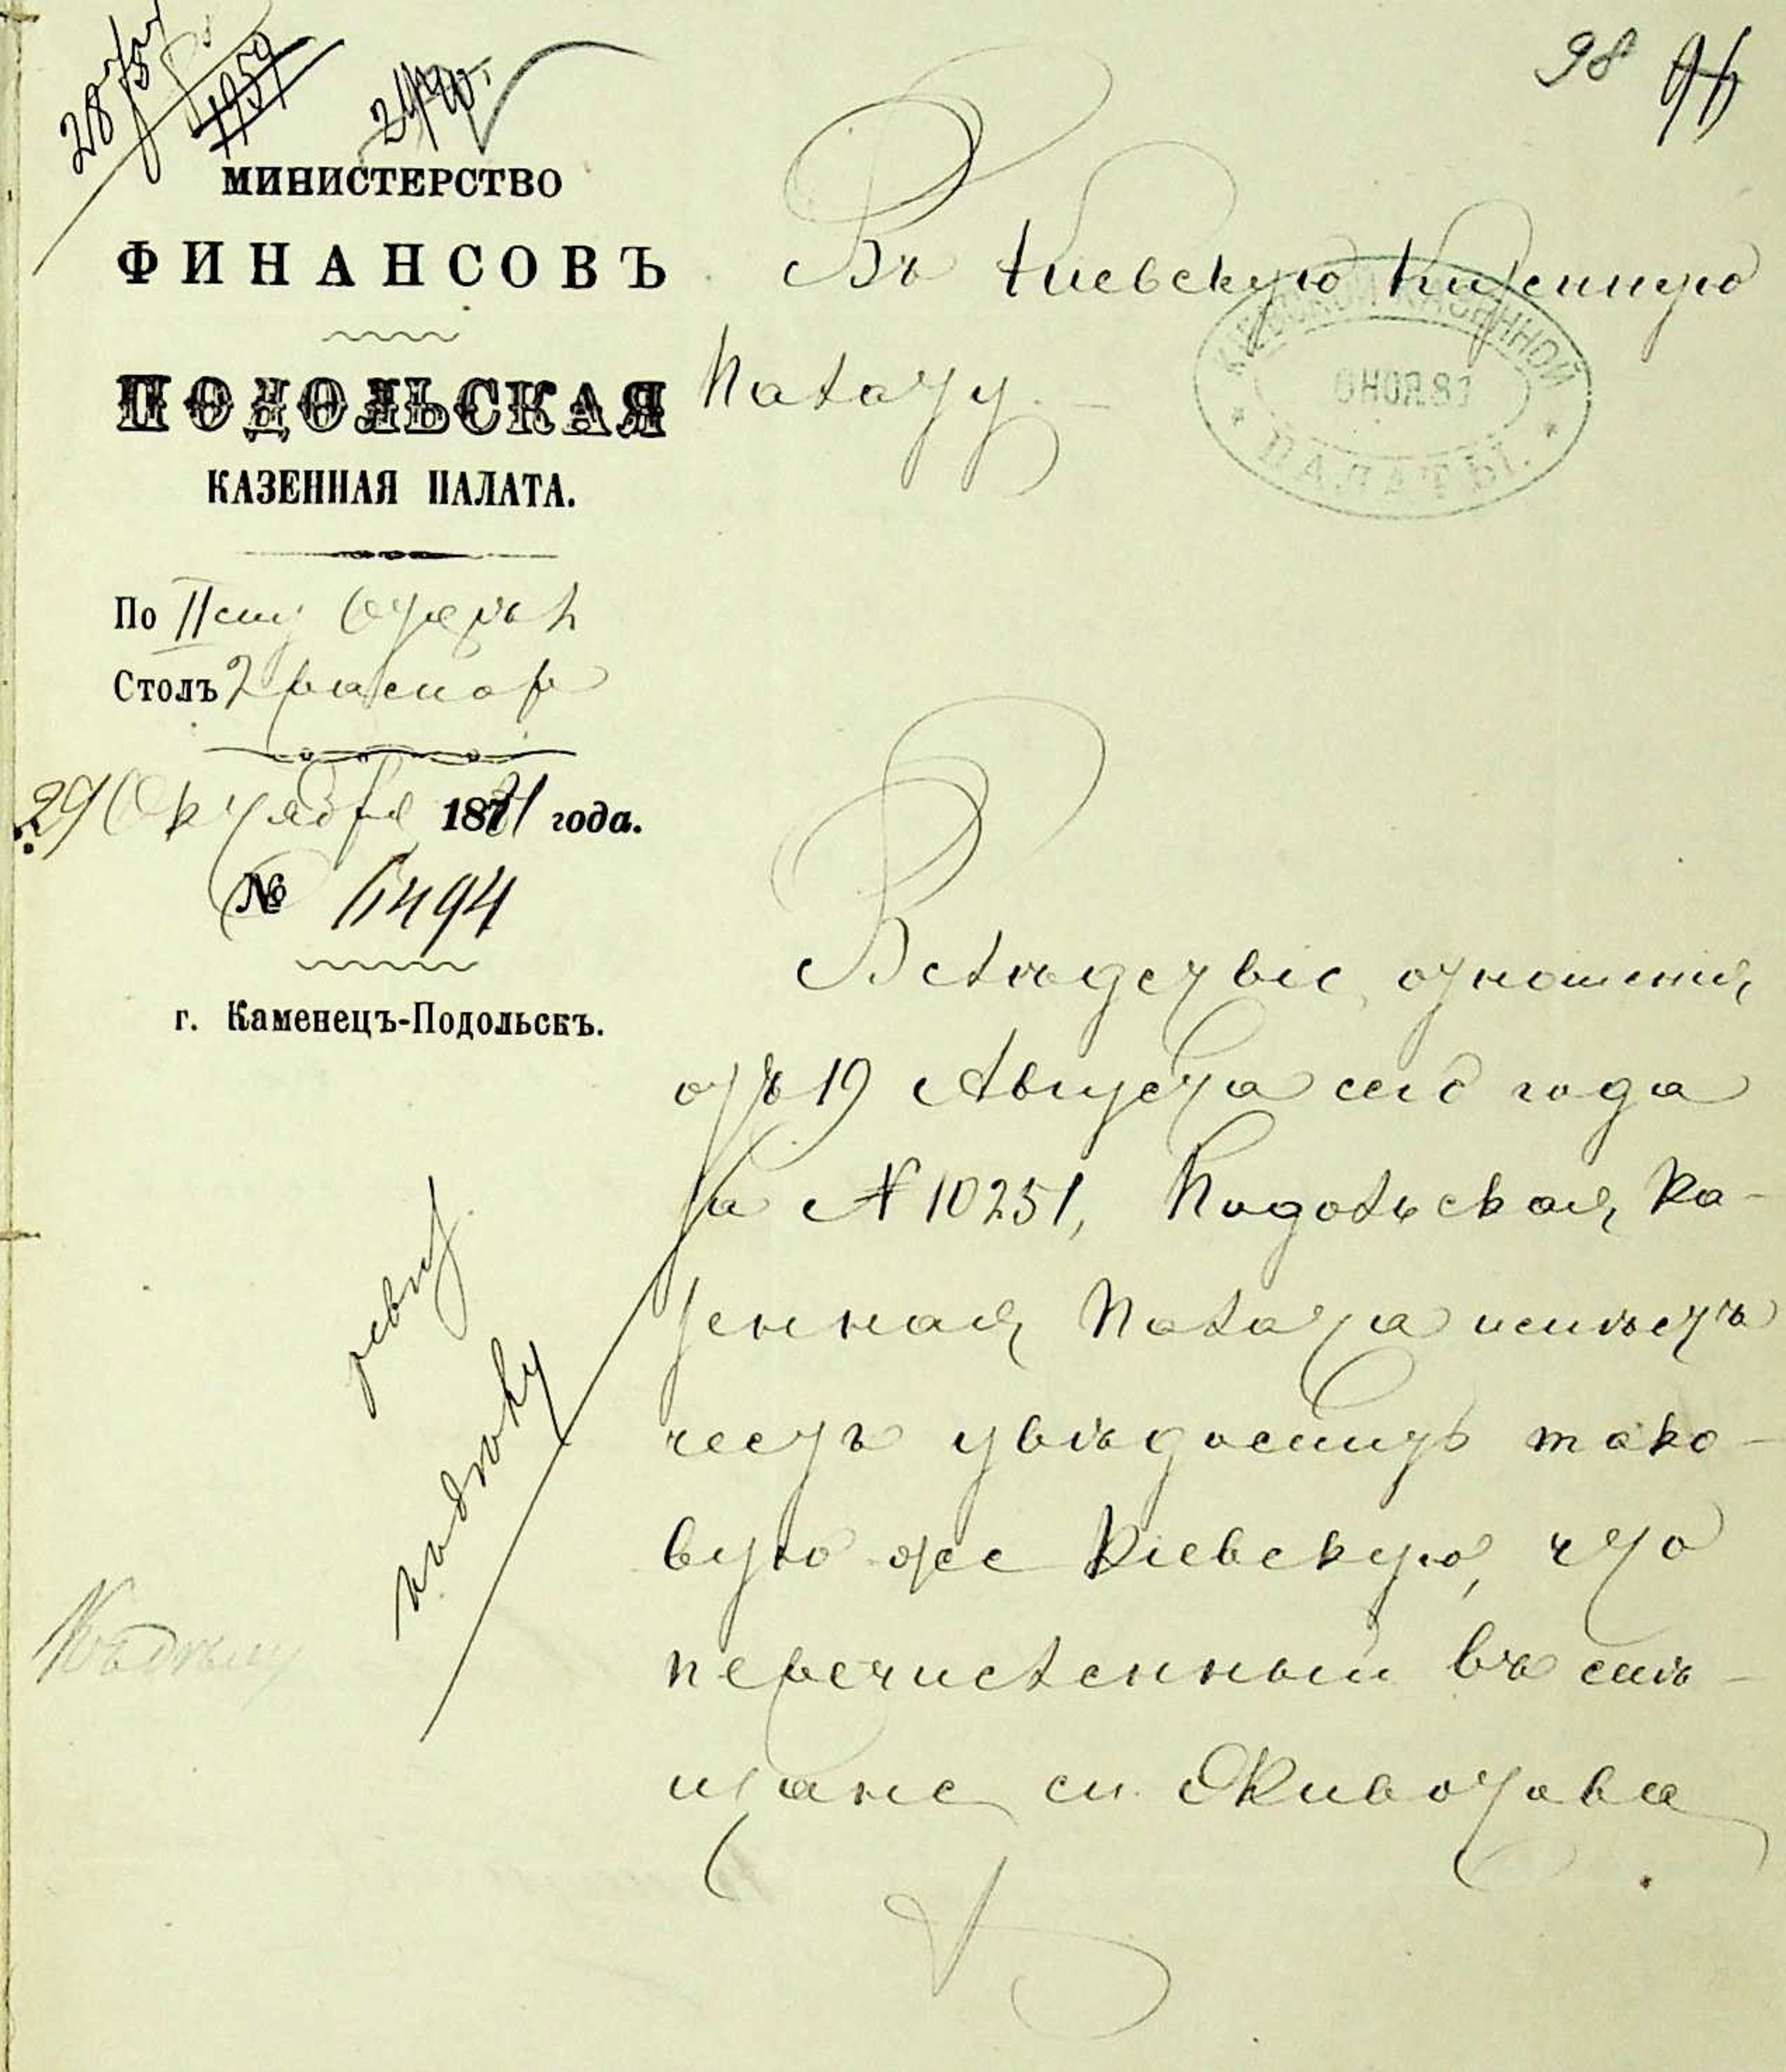 98 96
МИНИСТЕРСТВО
ФИНАНСОВЪ
ПОДОЛЬСКАЯ
КАЗЕННАЯ ПАЛАТА.
По II му Отдѣл
Столъ 2 ревизс
29 Октября 1881 года.
№ 6494
г. Каменецъ-Подольскъ.
Въ Кіевскую Казенную
Палату.
КІЕВСКОЙ КАЗЕННОЙ
6 НОЯ. 81
ПАЛАТЫ.
Вслѣдствіе отношенія,
отъ 19 Августа сего года
за № 10251, Подольская Ка-
зенная Палата имѣетъ
честь увѣдомить тако-
вую же Кіевскую, что
перечисленный въ мѣ-
щане м. Животова
ревиз.
Къ дѣлу